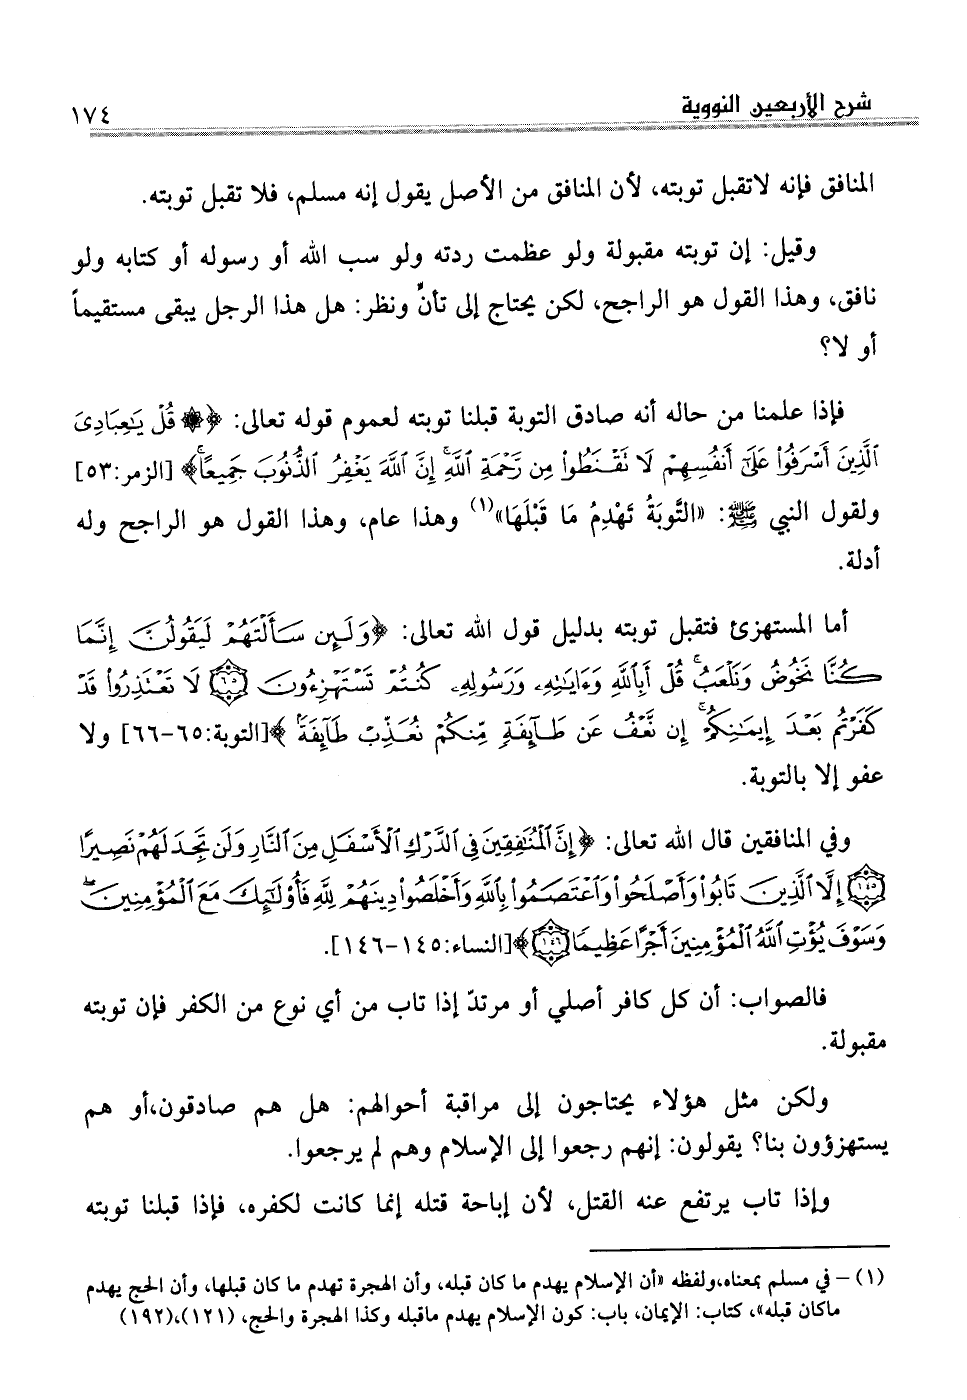 شرح الأربعين النووية
١٧٤
المنافق فإنه لاتقبل توبته، لأن المنافق من الأصل يقول إنه مسلم، فلا تقبل توبته.
وقيل: إن توبته مقبولة ولو عظمت ردته ولو سب الله أو رسوله أو كتابه ولو
نافق، وهذا القول هو الراجح، لكن يحتاج إلى تأنٍّ ونظر: هل هذا الرجل يبقى مستقيماً
أو لا؟
فإذا علمنا من حاله أنه صادق التوبة قبلنا توبته لعموم قوله تعالى: ﴿۞ قُلْ يَـٰعِبَادِىَ
ٱلَّذِينَ أَسْرَفُوا۟ عَلَىٰٓ أَنفُسِهِمْ لَا تَقْنَطُوا۟ مِن رَّحْمَةِ ٱللَّهِ ۚ إِنَّ ٱللَّهَ يَغْفِرُ ٱلذُّنُوبَ جَمِيعًا ۚ﴾ [الزمر:٥٣]
ولقول النبي ﷺ: «التَّوبَةُ تَهْدِمُ مَا قَبْلَهَا»(١) وهذا عام، وهذا القول هو الراجح وله
أدلة.
أما المستهزئ فتقبل توبته بدليل قول الله تعالى: ﴿وَلَئِن سَأَلْتَهُمْ لَيَقُولُنَّ إِنَّمَا
كُنَّا نَخُوضُ وَنَلْعَبُ ۚ قُلْ أَبِٱللَّهِ وَءَايَـٰتِهِۦ وَرَسُولِهِۦ كُنتُمْ تَسْتَهْزِءُونَ ۝٦٥ لَا تَعْتَذِرُوا۟ قَدْ
كَفَرْتُم بَعْدَ إِيمَـٰنِكُمْ ۚ إِن نَّعْفُ عَن طَآئِفَةٍ مِّنكُمْ نُعَذِّبْ طَآئِفَةًۢ ﴾[التوبة:٦٥-٦٦] ولا
عفو إلا بالتوبة.
وفي المنافقين قال الله تعالى: ﴿إِنَّ ٱلْمُنَـٰفِقِينَ فِى ٱلدَّرْكِ ٱلْأَسْفَلِ مِنَ ٱلنَّارِ وَلَن تَجِدَ لَهُمْ نَصِيرًا
۝١٤٥ إِلَّا ٱلَّذِينَ تَابُوا۟ وَأَصْلَحُوا۟ وَٱعْتَصَمُوا۟ بِٱللَّهِ وَأَخْلَصُوا۟ دِينَهُمْ لِلَّهِ فَأُو۟لَـٰٓئِكَ مَعَ ٱلْمُؤْمِنِينَ ۖ
وَسَوْفَ يُؤْتِ ٱللَّهُ ٱلْمُؤْمِنِينَ أَجْرًا عَظِيمًا ۝١٤٦﴾[النساء:١٤٥-١٤٦].
فالصواب: أن كل كافر أصلي أو مرتدّ إذا تاب من أي نوع من الكفر فإن توبته
مقبولة.
ولكن مثل هؤلاء يحتاجون إلى مراقبة أحوالهم: هل هم صادقون،أو هم
يستهزؤون بنا؟ يقولون: إنهم رجعوا إلى الإسلام وهم لم يرجعوا.
وإذا تاب يرتفع عنه القتل، لأن إباحة قتله إنما كانت لكفره، فإذا قبلنا توبته
(١) – في مسلم بمعناه،ولفظه «أن الإسلام يهدم ما كان قبله، وأن الهجرة تهدم ما كان قبلها، وأن الحج يهدم
ماكان قبله»، كتاب: الإيمان، باب: كون الإسلام يهدم ماقبله وكذا الهجرة والحج، (١٢١)،(١٩٢)